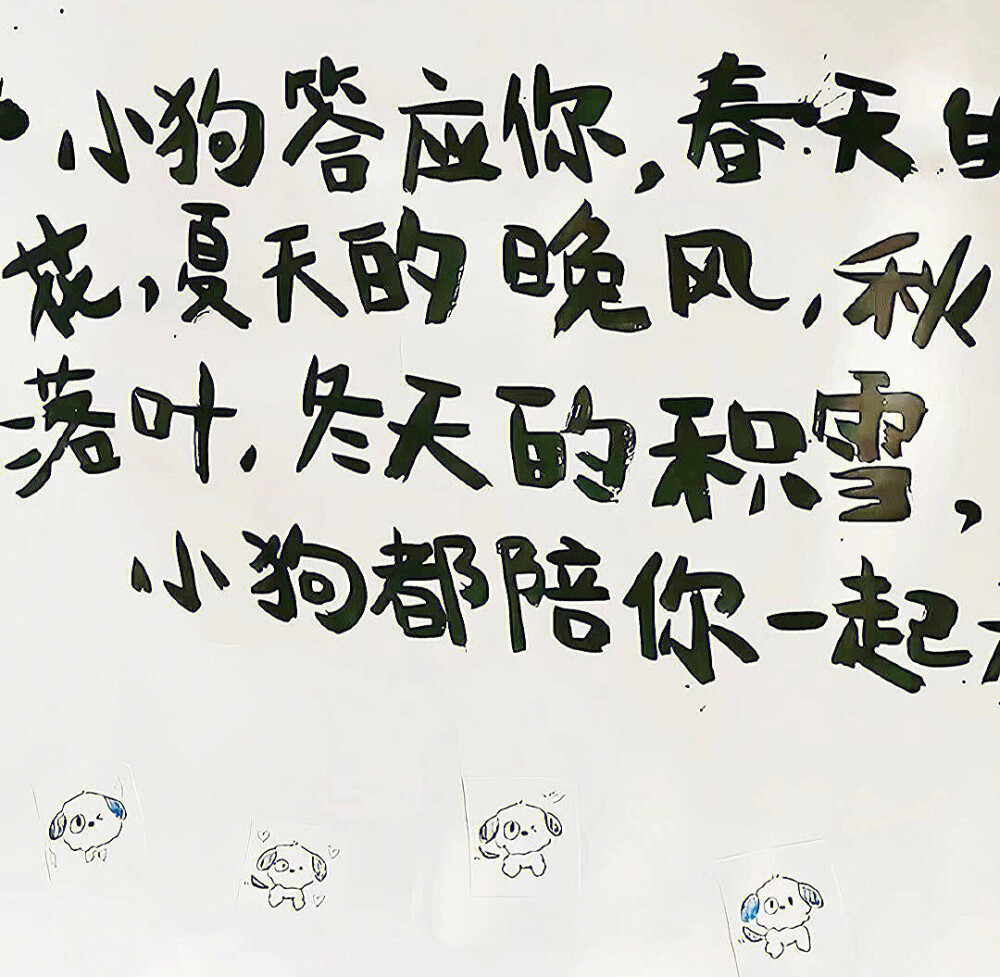 小狗答应你,春天
花,夏天的晚风,秋
落叶,冬天的积雪,
小狗都陪你一起